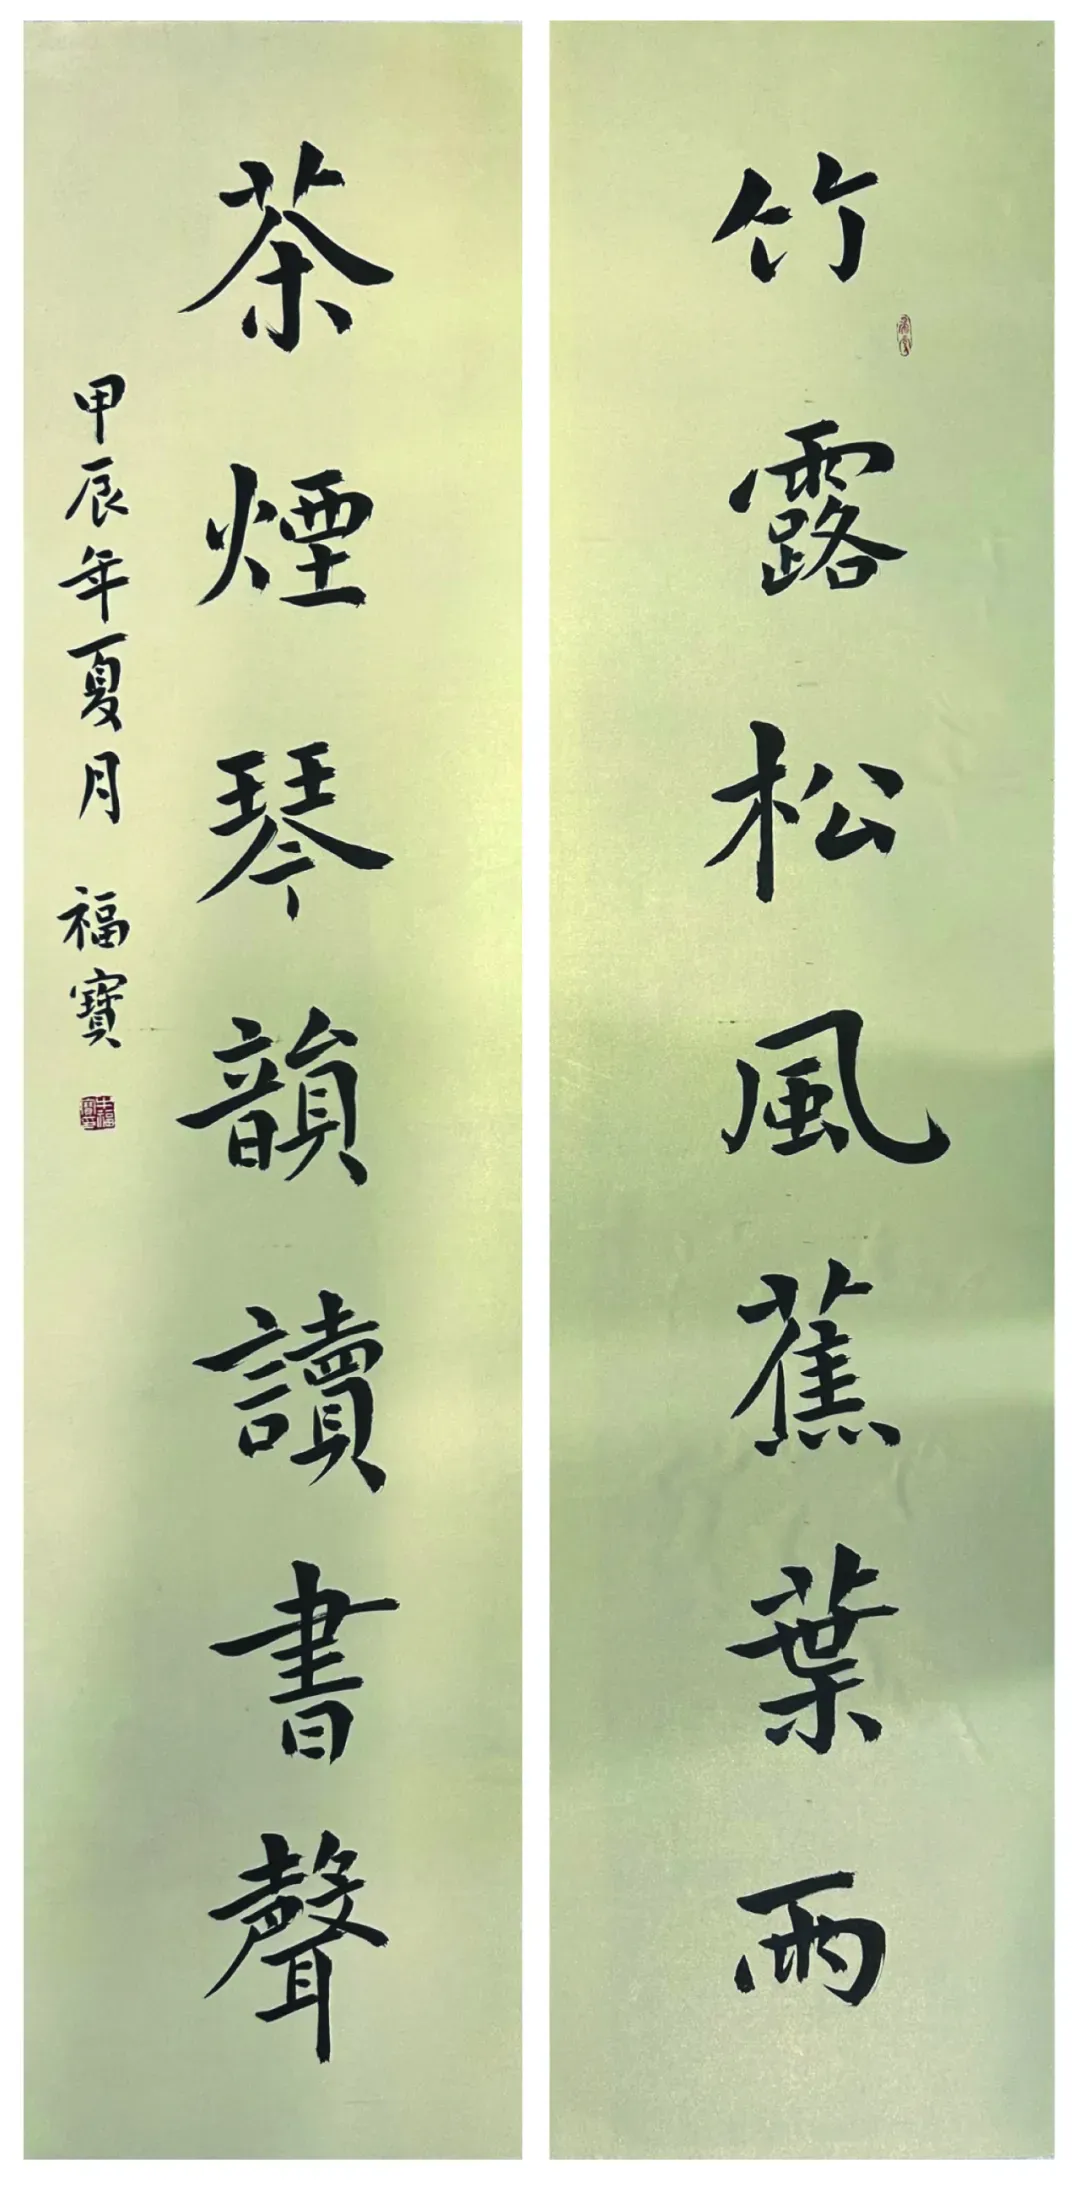 竹露松風蕉葉雨
茶煙琴韻讀書聲
甲辰年夏月 福寶